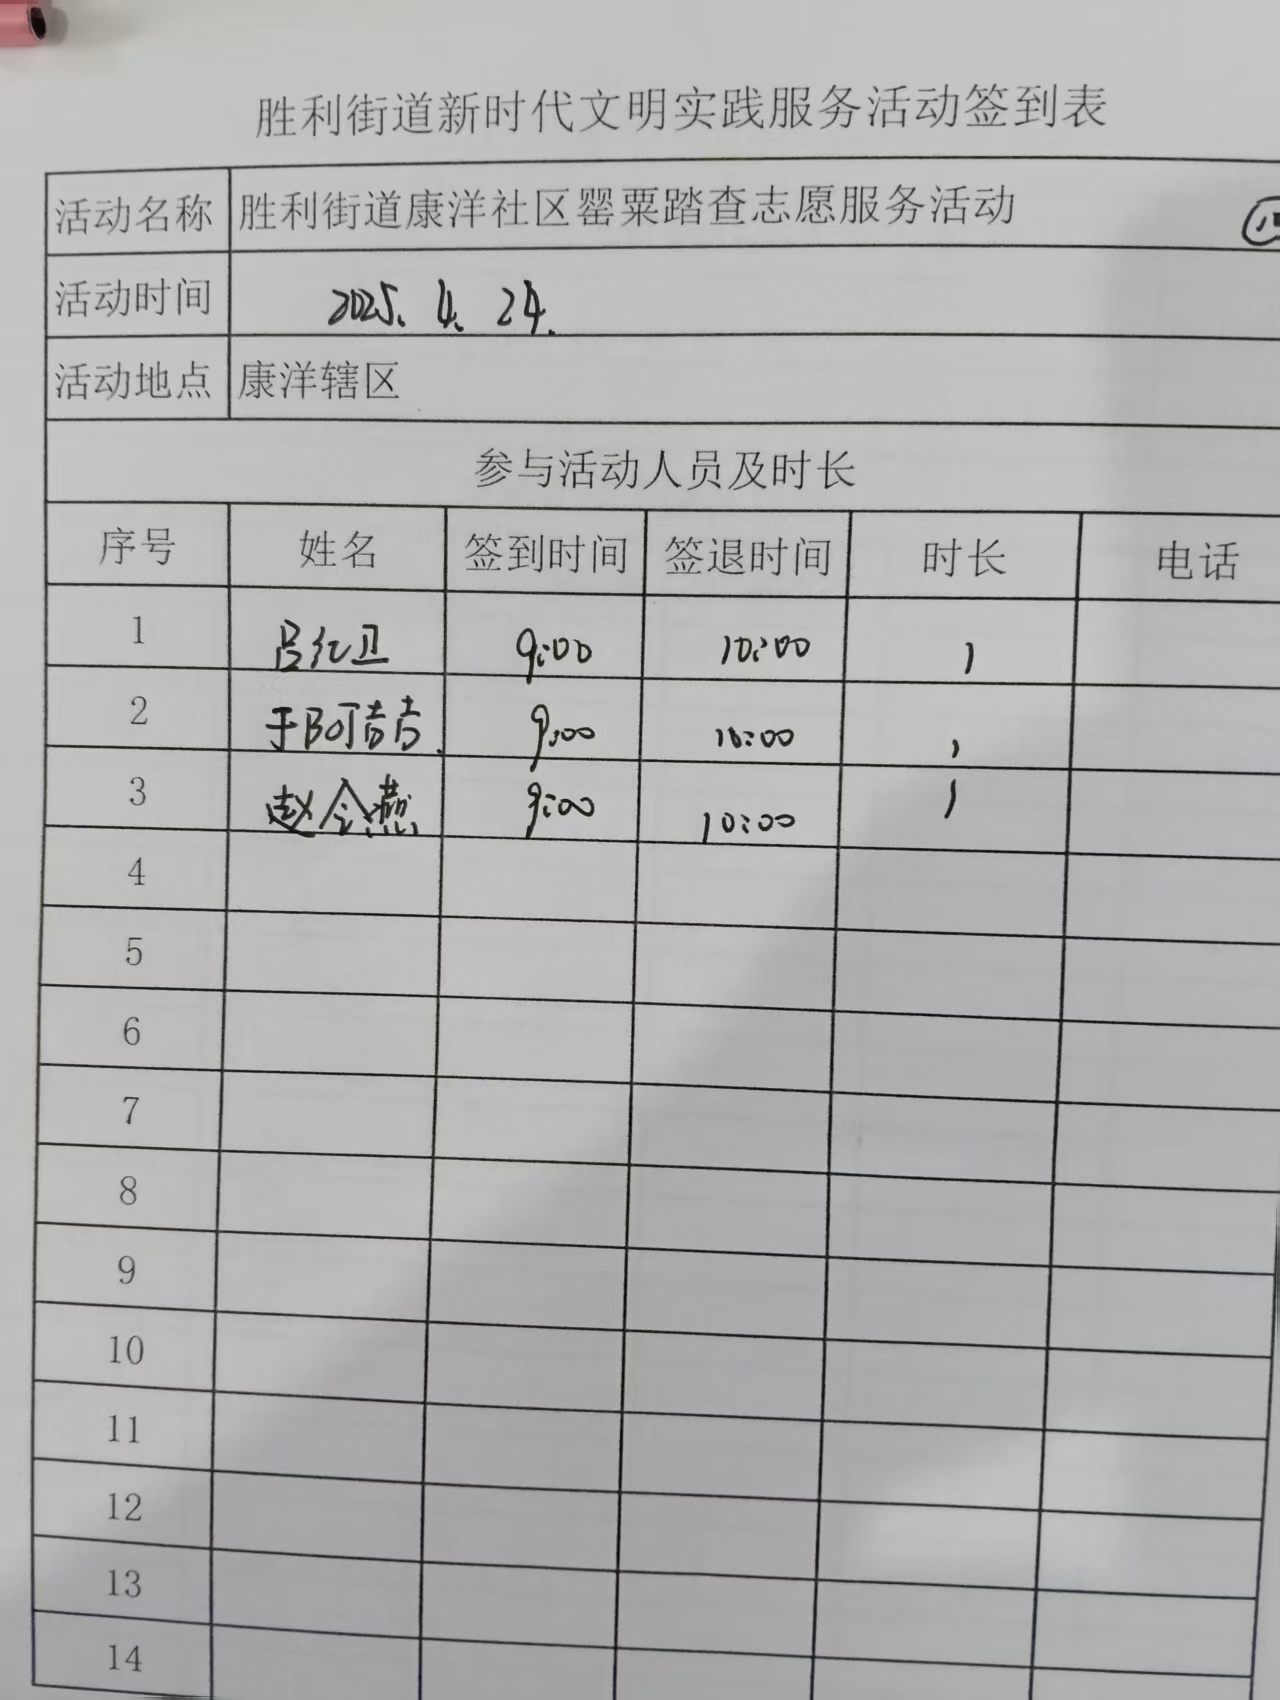 胜利街道新时代文明实践服务活动签到表
活动名称 胜利街道康洋社区罂粟踏查志愿服务活动
活动时间 2025.4.24.
活动地点 康洋辖区
参与活动人员及时长
序号 姓名 签到时间 签退时间 时长 电话
1 吕红卫 9:00 10:00 1
2 于阿吉吉 9:00 10:00 1
3 赵令燕 9:00 10:00 1
4
5
6
7
8
9
10
11
12
13
14